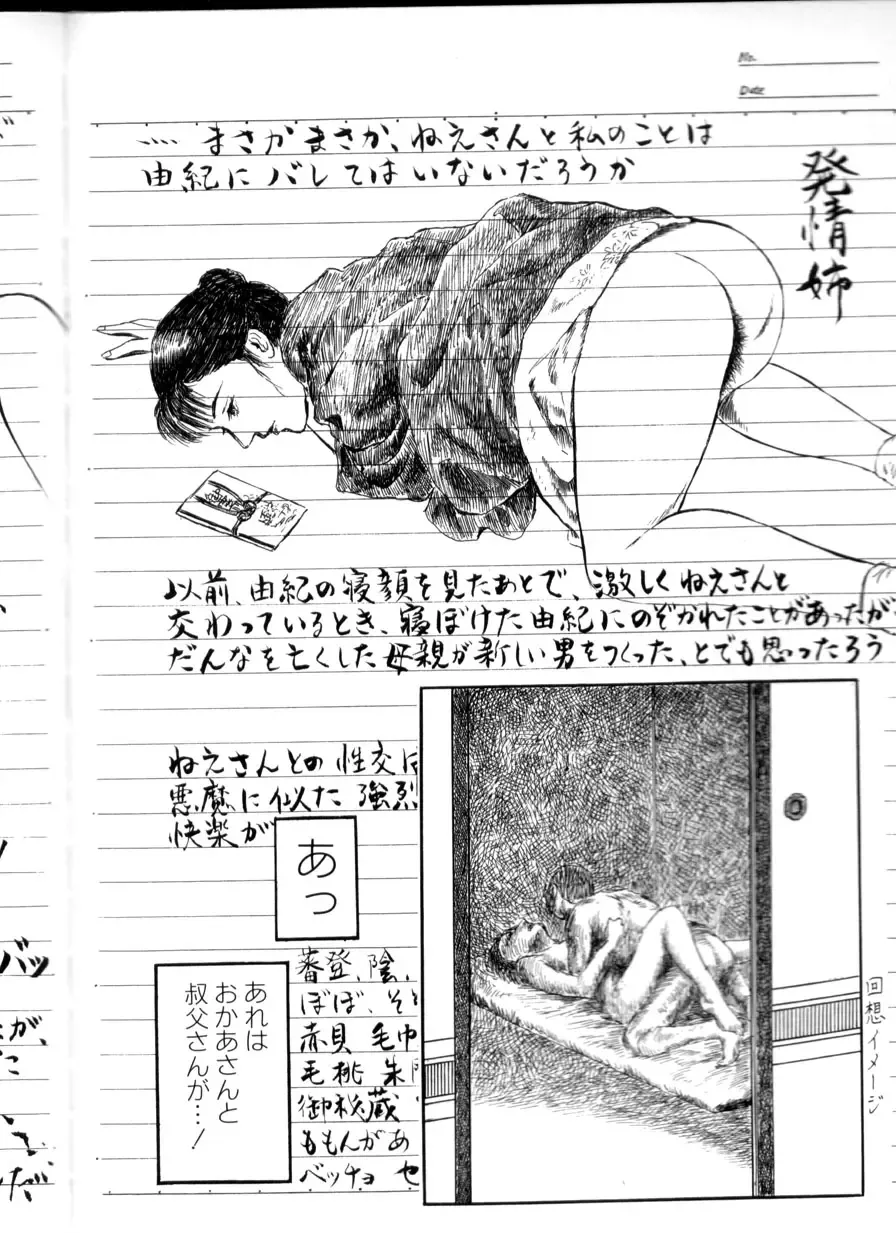 No.
Date
‥‥ まさかまさか、ねえさんと私のことは
由紀にバレてはいないだろうか
発情姉
以前、由紀の寝顔を見たあとで、激しくねえさんと
交わっているとき、寝ぼけた由紀にのぞかれたことがあったが
だんなを亡くした母親が新しい男をつくった、とでも思ったろう
ねえさんとの性交は
悪魔に似た強烈
快楽が
あっ
あれは
おかあさんと
叔父さんが…!
蕃登、陰、
ぼぼ、そ
赤貝 毛巾
毛桃 朱
御秘蔵
ももんがあ
ベッチョ セ
回想イメージ